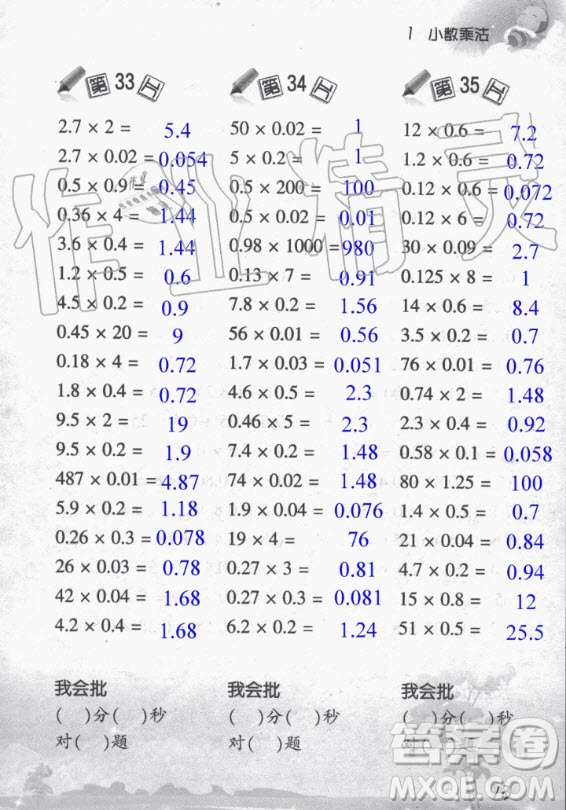 1 小数乘法
第 33 页
2.7 × 2 = 5.4
2.7 × 0.02 = 0.054
0.5 × 0.9 = 0.45
0.36 × 4 = 1.44
3.6 × 0.4 = 1.44
1.2 × 0.5 = 0.6
4.5 × 0.2 = 0.9
0.45 × 20 = 9
0.18 × 4 = 0.72
1.8 × 0.4 = 0.72
9.5 × 2 = 19
9.5 × 0.2 = 1.9
487 × 0.01 = 4.87
5.9 × 0.2 = 1.18
0.26 × 0.3 = 0.078
26 × 0.03 = 0.78
42 × 0.04 = 1.68
4.2 × 0.4 = 1.68
我会批
( )分( )秒
对( )题
第 34 页
50 × 0.02 = 1
5 × 0.2 = 1
0.5 × 200 = 100
0.5 × 0.02 = 0.01
0.98 × 1000 = 980
0.13 × 7 = 0.91
7.8 × 0.2 = 1.56
56 × 0.01 = 0.56
1.7 × 0.03 = 0.051
4.6 × 0.5 = 2.3
0.46 × 5 = 2.3
7.4 × 0.2 = 1.48
74 × 0.02 = 1.48
1.9 × 0.04 = 0.076
19 × 4 = 76
0.27 × 3 = 0.81
0.27 × 0.3 = 0.081
6.2 × 0.2 = 1.24
我会批
( )分( )秒
对( )题
第 35 页
12 × 0.6 = 7.2
1.2 × 0.6 = 0.72
0.12 × 0.6 = 0.072
0.12 × 6 = 0.72
30 × 0.09 = 2.7
0.125 × 8 = 1
14 × 0.6 = 8.4
3.5 × 0.2 = 0.7
76 × 0.01 = 0.76
0.74 × 2 = 1.48
2.3 × 0.4 = 0.92
0.58 × 0.1 = 0.058
80 × 1.25 = 100
1.4 × 0.5 = 0.7
21 × 0.04 = 0.84
4.7 × 0.2 = 0.94
15 × 0.8 = 12
51 × 0.5 = 25.5
我会批
( )分( )秒
对( )题
作业精灵
答案卷
MXQE.COM